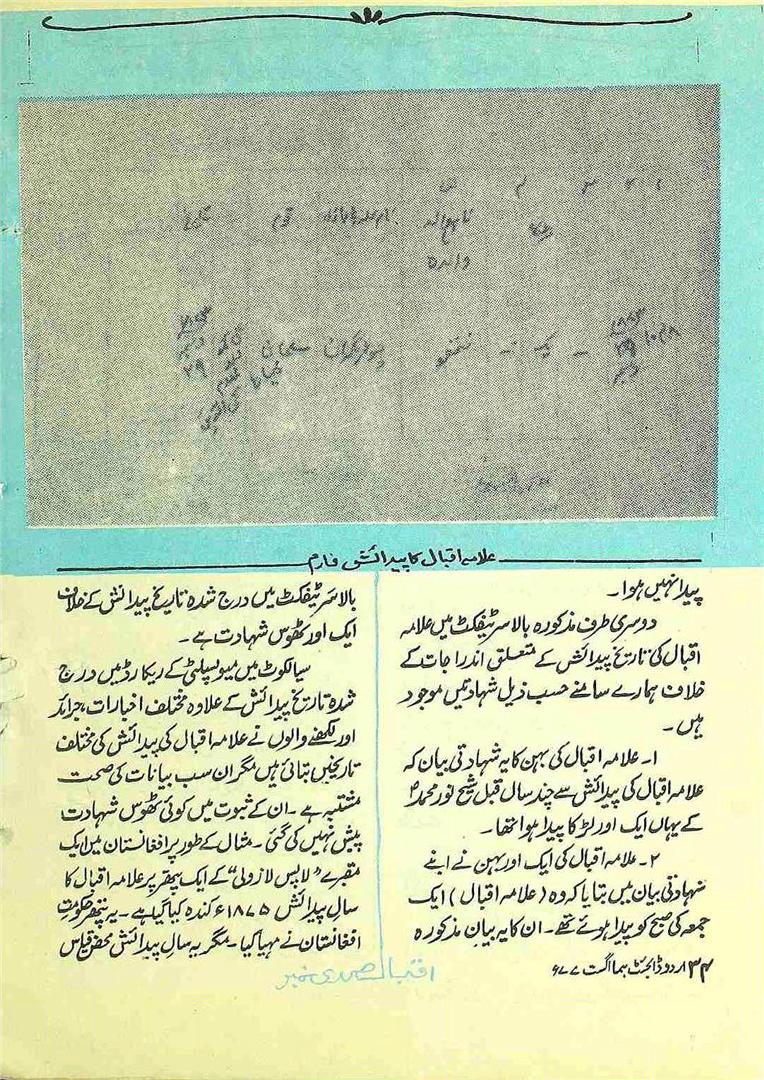 نام والد
والده
قوم
تاریخ
نتھو
علامہ اقبال کا پیدائش فارم
پیدا نہیں ہوا۔
دوسری طرف مذکورہ بالا سرٹیفکٹ میں علامہ
اقبال کی تاریخ پیدائش کے متعلق اندراجات کے
خلاف ہمارے سامنے حسب ذیل شہادتیں موجود
ہیں۔
۱۔ علامہ اقبال کی بہن کا یہ شہادتی بیان کہ
علامہ اقبال کی پیدائش سے چند سال قبل شیخ نور محمدؒ
کے یہاں ایک اور لڑکا پیدا ہوا تھا۔
۲۔ علامہ اقبال کی ایک اور بہن نے اپنے
شہادتی بیان میں بتایا کہ وہ (علامہ اقبال) ایک
جمعہ کی صبح کو پیدا ہوئے تھے۔ ان کا یہ بیان مذکورہ
بالا سرٹیفکٹ میں درج شدہ تاریخ پیدائش کے خلاف
ایک اور ٹھوس شہادت ہے۔
سیالکوٹ میں میونسپلٹی کے ریکارڈ میں درج
شدہ تاریخ پیدائش کے علاوہ مختلف اخبارات، جرائد
اور لکھنے والوں نے علامہ اقبال کی پیدائش کی مختلف
تاریخیں بتائی ہیں مگر ان سب بیانات کی صحت
مشتبہ ہے۔ ان کے ثبوت میں کوئی ٹھوس شہادت
پیش نہیں کی گئی۔ مثال کے طور پر افغانستان میں ایک
مقبرے "لاپس لازولی" کے ایک پتھر پر علامہ اقبال کا
سال پیدائش ۱۸۷۵ء کندہ کیا گیا ہے۔ یہ پتھر حکومت
افغانستان نے مہیا کیا۔ مگر یہ سال پیدائش محض قیاس
۳۴ اردو ڈائجسٹ ہما اگست ۷۷ء
اقبال صدی نمبر